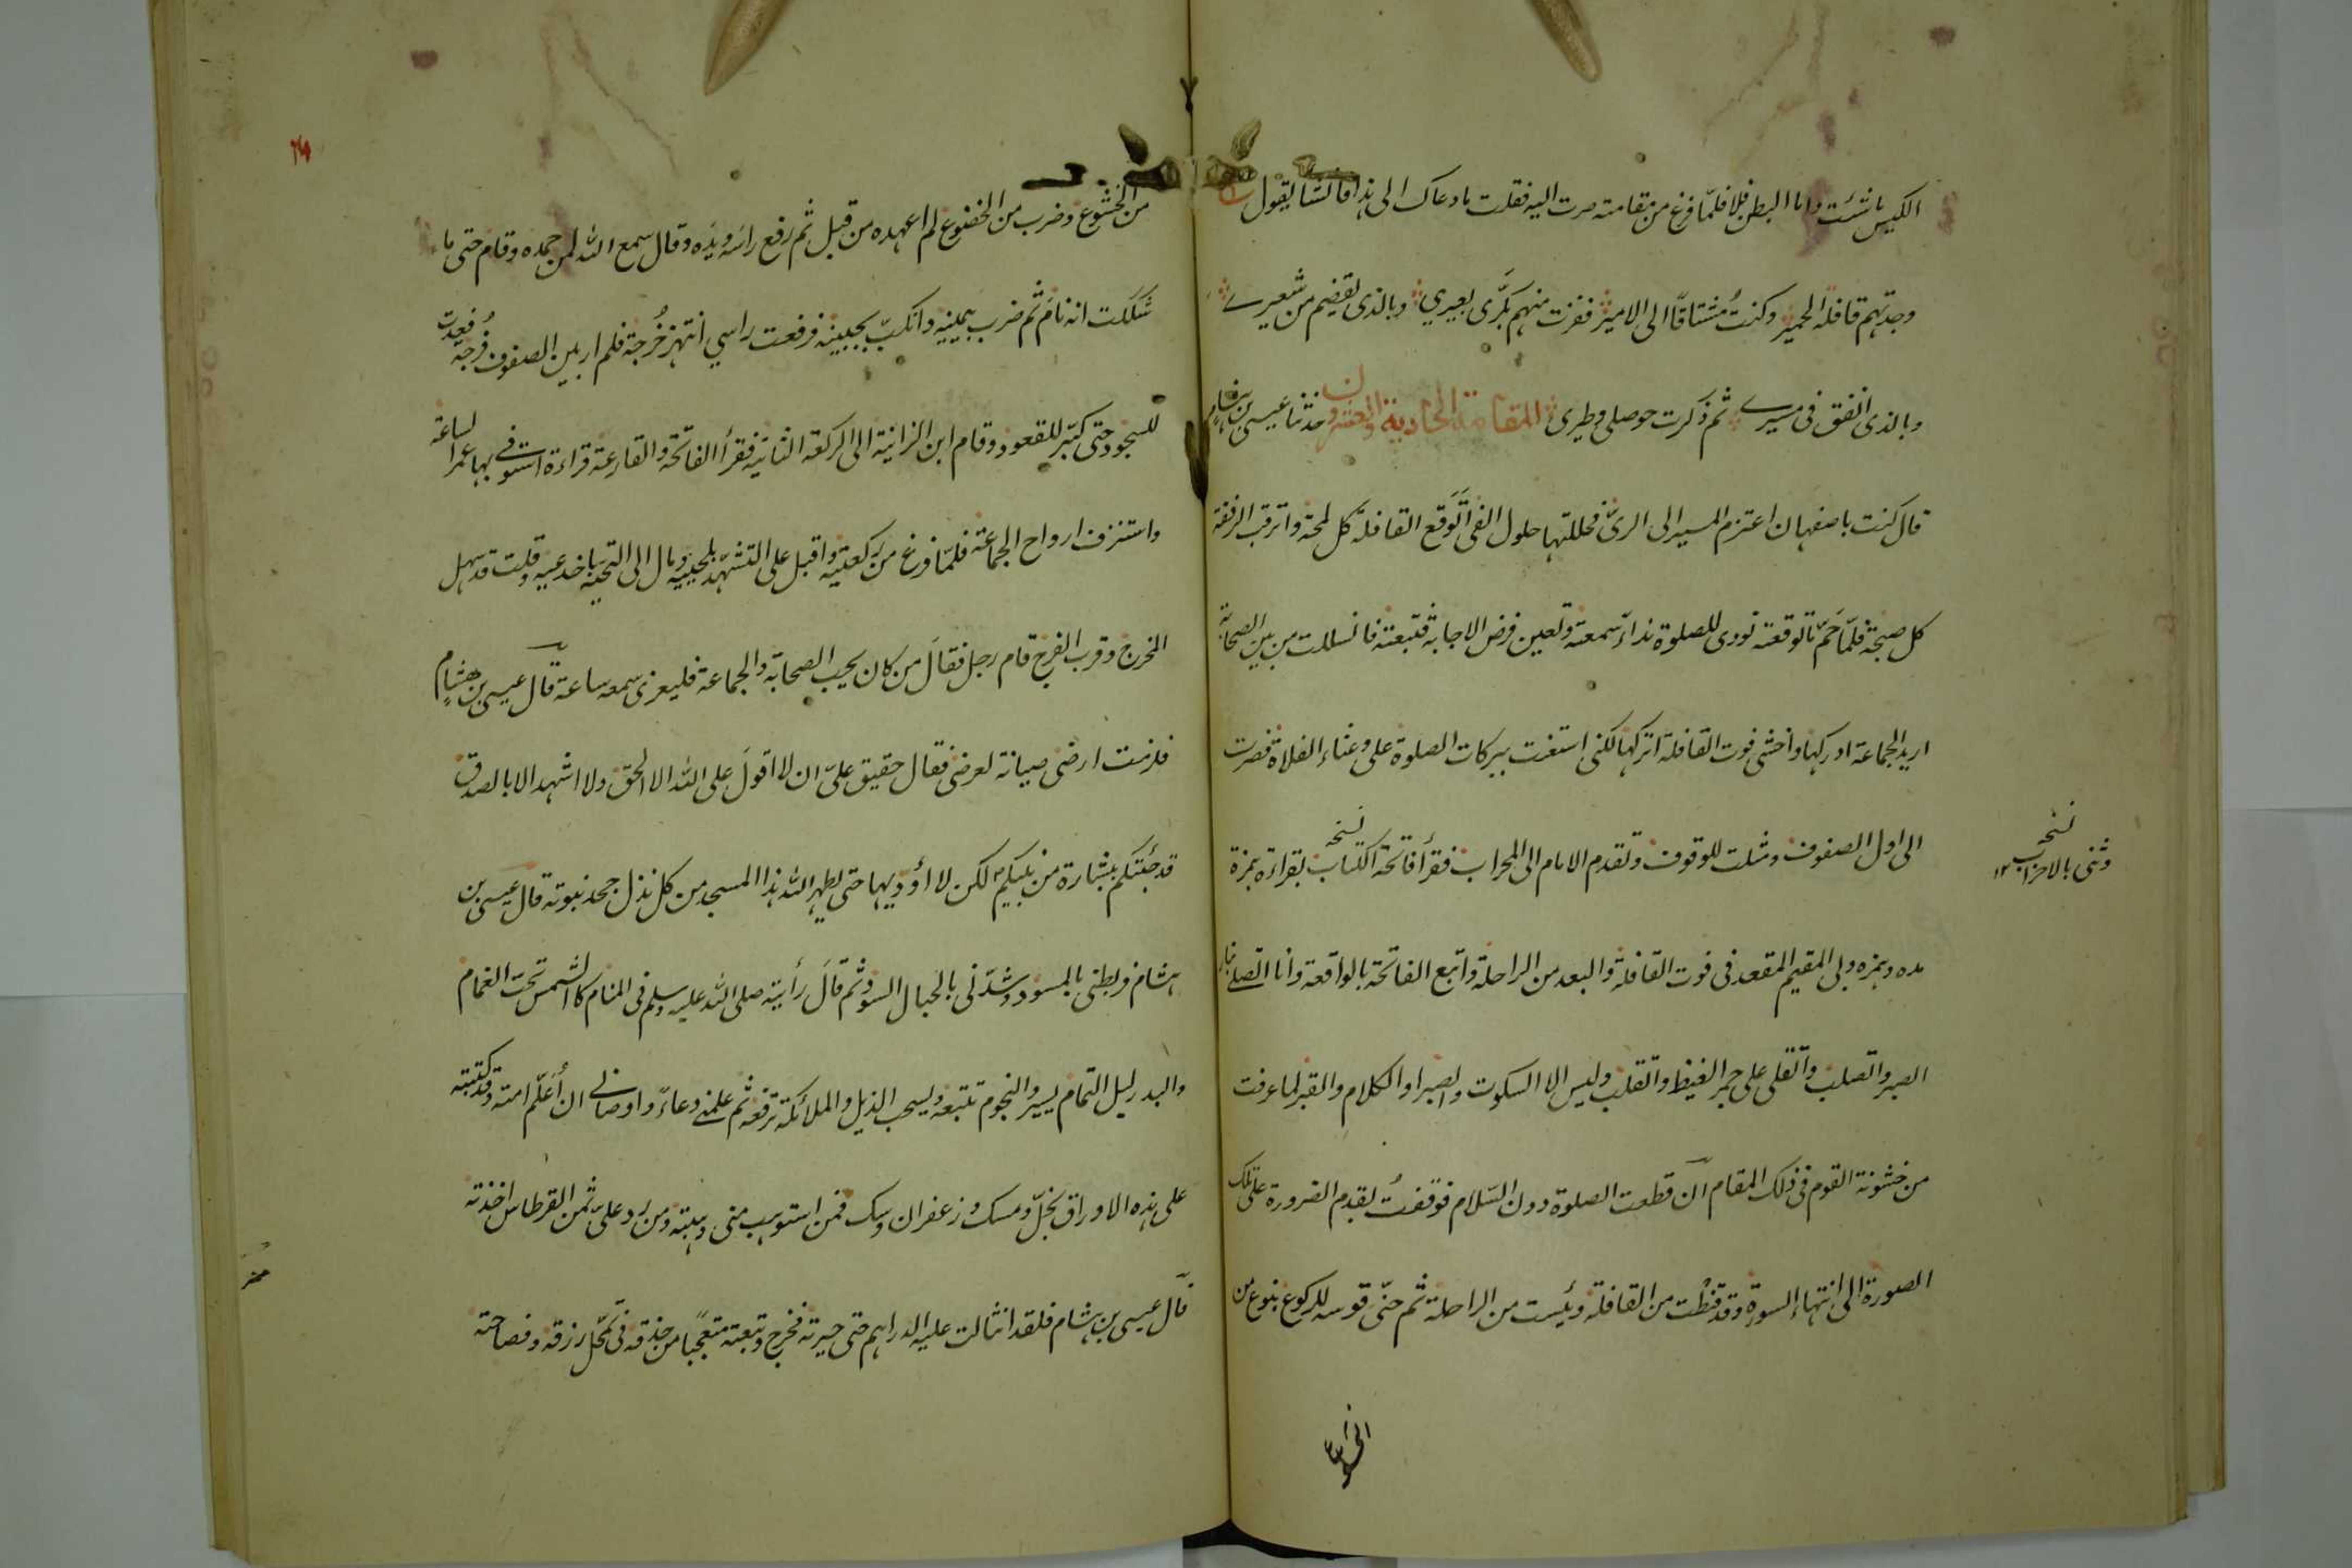 الكيس ما شئت واما البطن فلا فلمّا فرغ من مقامته صرت اليه فقلت ما دعاك الى هذا فانشا يقول
وجدتهم قافلة الحمير وكنتُ مشتاقاً الى الامير ففزت منهم بكرَّى بعيري وبالذى يقضيم من شعيرے
وبالذى انفق فى مسيرے ثم ذكرت حوصلى وطيرى المقامة الحادية والعشرون حدثنا عيسى بن هشام
قال كنت باصفهان اعتزم المسير الى الريّ فحللتها حلول الفئ اتَوَقع القافلة كل لمحة واترقب الرفقة
كل صبحة فلمّا حَمّ ما توقعته نودى للصلوة نداءً سمعته وتعين فرض الاجابة فتبعته فانسللت من بين الصحابة
اريد الجماعة ادركها واخشى فوت القافلة اتركها لكنى استعنت ببركات الصلوة على وعثاء الفلاة فصرت
الى اول الصفوف ومثلت للوقوف وتقدم الامام الى المحراب فقرأ فاتحة الكتاب بقراءة حمزة
نسخه
نسخه
وثنى بالاحزاب ١٢
مده وهمزه وبى المقيم المقعد فى فوت القافلة والبعد من الراحلة واتبع الفاتحة بالواقعة وانا اتصلے نار
الصبر واتصلب واتقلى على جمر الغيظ واتقلب وليس الا السكوت والصبر او الكلام والقبر لما عرفت
من خشونة القوم فى ذلك المقام ان قطعت الصلوة دون السّلام فوقفتُ بقدم الضرورة على تلك
الصورة الى انتهاء السورة وقد قنطْت من القافلة ويئست من الراحلة ثم حنّى قوسه للركوع بنوع من
الخشوع
من الخشوع وضرب من الخضوع لم اعهده من قبل ثم رفع راسه ويَده وقال سمع الله لمن حمده وقام حتى ما
شككت انه نام ثم ضرب بيمينه وانكبّ بجبينه فرفعت راسي انتهز خُرجة فلم ار بين الصفوف فُرجة فعُدت
للسجود حتى كبّر للقعود وقام ابن الزانية الى الركعة الثانية فقرأ الفاتحة والقارعة قراءة استوفے بها عمر الساعة
واستنزف ارواح الجماعة فلمّا فرغ من ركعتيه واقبل على التشهّد بلحييه ومال الى التحية باخدعيه وقلت قد سهل
المخرج وقرب الفرج قام رجل فقالَ من كان يحب الصحابة والجماعة فليعرنى سمعه ساعة قال عيسى بن هشام
فلزمت ارضى صيانة لعرضى فقال حقيق علىّ ان لا اقولَ على الله الا الحق ولا اشهد الا بالصدق
قد جئتكم ببشارة من نبيكم لكن لا أؤديها حتى يطهر الله هذا المسجد من كل نذل جحد نبوته قال عيسى بن
هشام فربطنى بالمسود وشدّنى بالحبال السود ثم قالَ رأيته صلى الله عليه وسلم فى المنام كالشمس تحت الغمام
والبدر ليل التمام يسير والنجوم تتبعه ويسحب الذيل والملائكة ترفعه ثم علمنے دعاءً واوصانے ان أعَلّم امته وقد كتبته
على هذه الاوراق بخلّ ومسك وزعفران وسك فمن استوهب منى وهبته ومن رد علىّ ثمن القرطاس اخذته
قال عيسى بن هشام فلقد انثالت عليه الدراهم حتى حيرته فخرج وتبعته متعجّباً من حذقه فى تمحّل رزقه وفصاحته